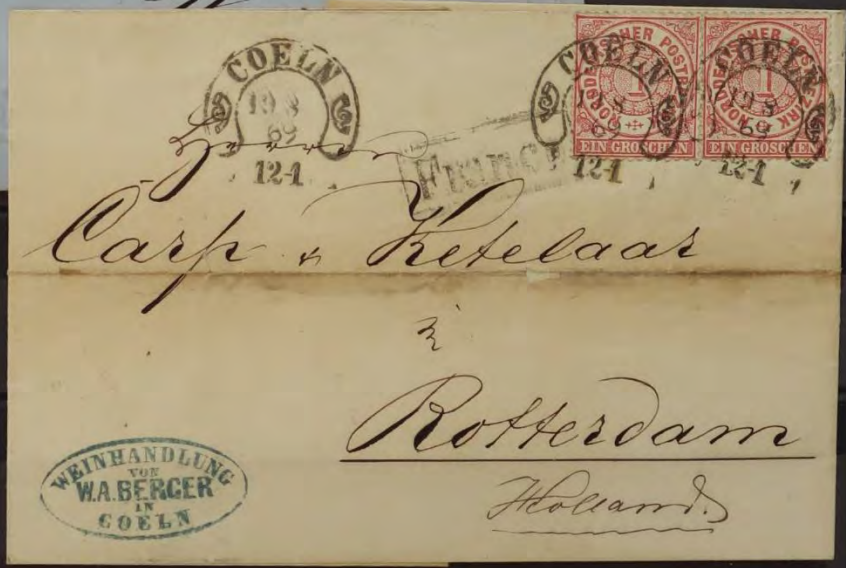 COELN
19 8
69
12-1
COELN
19 8
69
12-1
COELN
19 8
69
12-1
NORDDEUTSCHER POSTBEZIRK
1
EIN GROSCHEN
NORDDEUTSCHER POSTBEZIRK
1
EIN GROSCHEN
Franco
Herren
Carp & Ketelaar
Rotterdam
Holland.
WEINHANDLUNG
VON
W.A. BERGER
IN
COELN